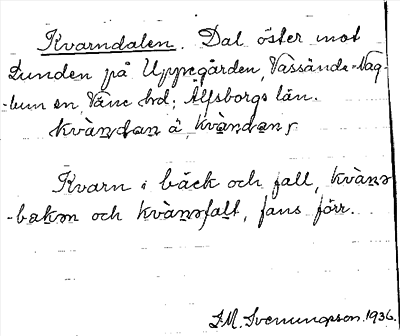 Kvarndalen. Dal öster mot
Lunden på Uppegården, Vässända-Nag-
-lum sn, Väne hd; Älfsborgs län.
kvàṇdan å, kvàṇdaṇ,
Kvarn i bäck och fall, kvàṇə
-bakən och kvàṇəfalt, fans förr.
J.M. Svenungson. 1936.